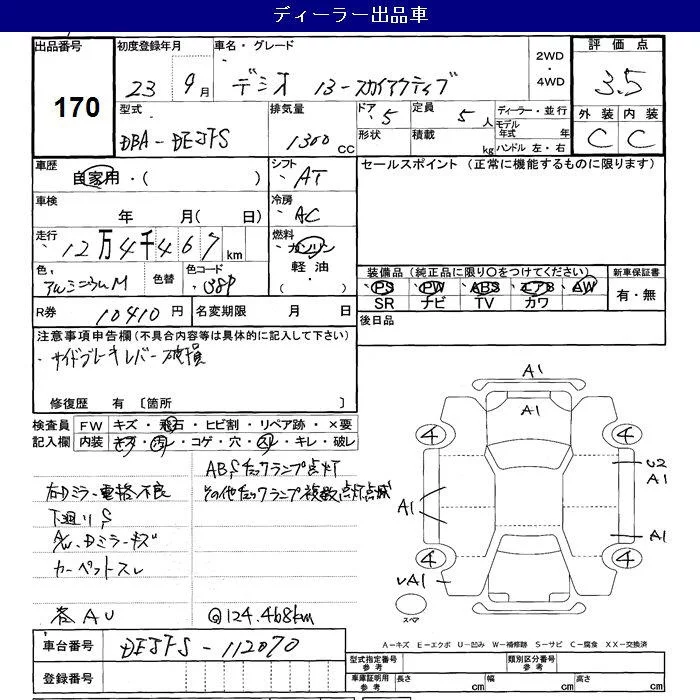 ディーラー出品車
出品番号 初度登録年月 車名・グレード 2WD・4WD 評価点
170
23 9月 デミオ 13-スカイアクティブ
3.5
型式 排気量 ドア 定員 ディーラー・並行 外装 内装
DBA-DEJFS 1300CC 5 5人 モデル年式 年
形状 積載 kg ハンドル 左・右 C C
車歴 シフト セールスポイント (正常に機能するものに限ります)
自家用・( ) AT
車検 冷房
年 月( 日) AC
走行 燃料
12万4千467km ガソリン
軽油
・( )
色 色替 色コード 装備品 (純正品に限り○をつけてください) 新車保証書
アルミニウムM 38P PS PW ABS エアB AW
SR ナビ TV カワ 有・無
R券 10410円 名変期限 月 日 後日品
注意事項申告欄(不具合内容等は具体的に記入して下さい)
・サイドブレーキレバー破損
修復歴 有 [箇所 ]
検査員 FW キズ・飛石・ヒビ割・リペア跡・×要
記入欄 内装 キズ・汚レ・コゲ・穴・スレ・キレ・破レ
ABSチェックランプ点灯
右Dミラー電格不良 その他チェックランプ複数点灯点滅
下廻りS
A/w、Dミラーキズ
カーペットスレ
各AU @124.468km
A1
A1
4 4
U2
A1
A1
A1
4 4
UA1
スペア
A-キズ E-エクボ U-凹み W-補修跡 S-サビ C-腐食 XX-交換済
車台番号 DEJFS-112070
登録番号
型式指定番号 参考 類別区分番号 参考
車庫証明用 参考 長さ cm 幅 cm 高さ cm